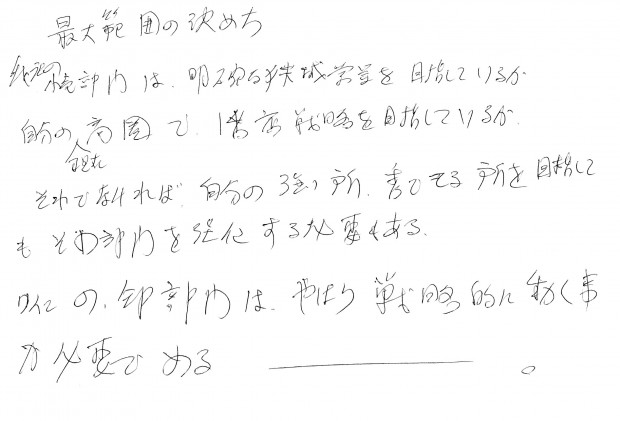 最大範囲の決めち
部内は、明確な 目指しているか
自分の商圏で、1番店戦略を目指しているか.
現在
それでなければ 自分の強い所、秀でてる所を目指して
も その部内を強化する必要もある.
ワインの、卸部内は、やはり戦略的に動く事
が必要である 。